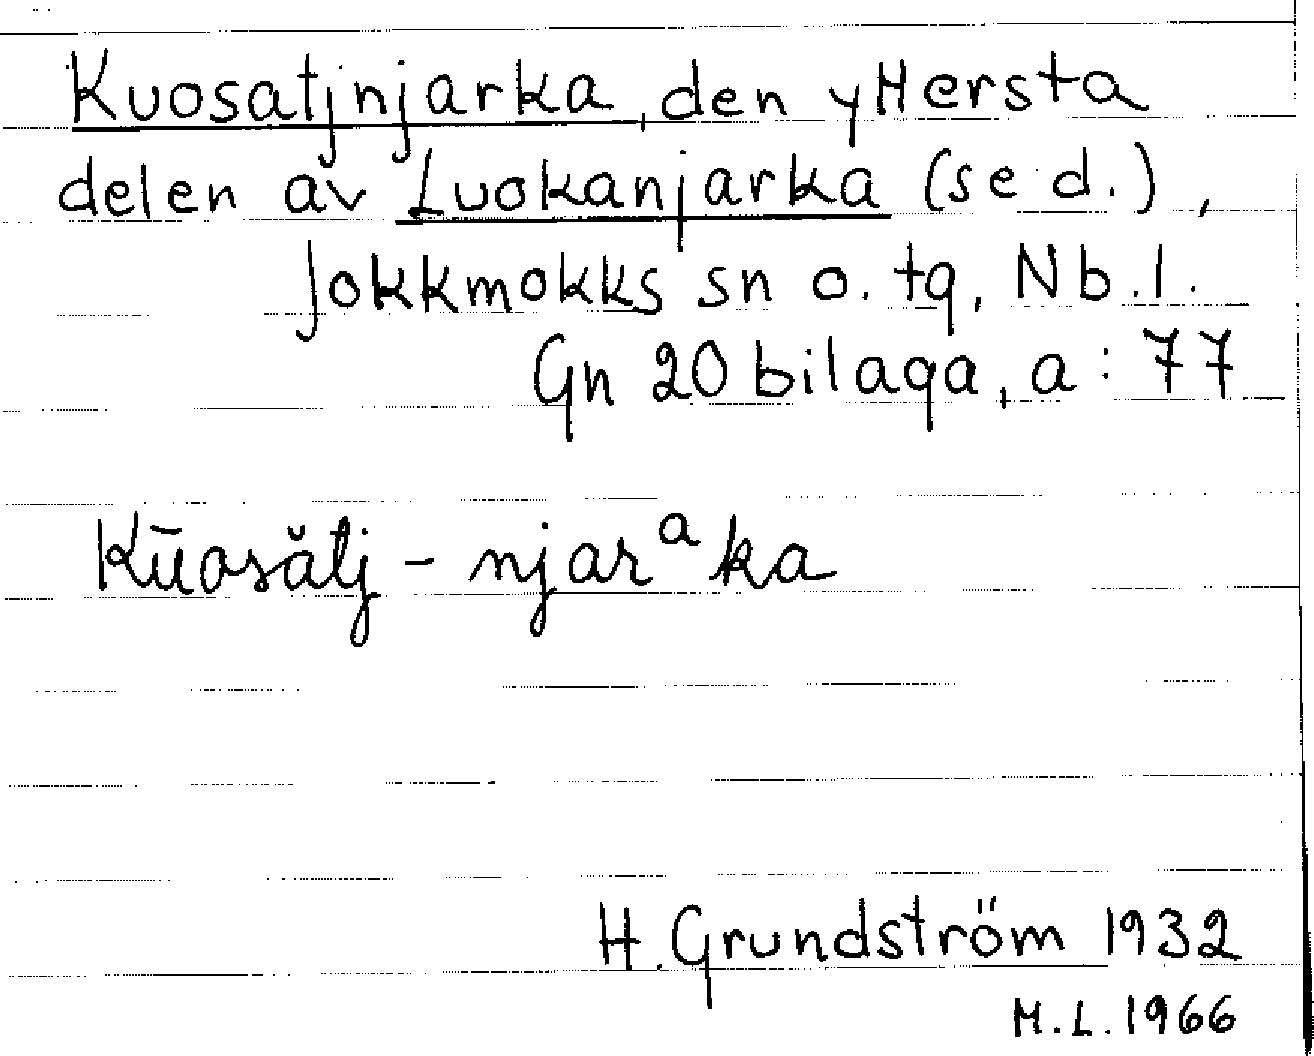 Kuosatjnjarka, den yttersta
delen av Luokanjarka (se d.),
Jokkmokks sn o. tg, Nb.l.
Gn 20 bilaga, a: 77
Kūasătj - njarᵃka
H. Grundström 1932
M.L. 1966